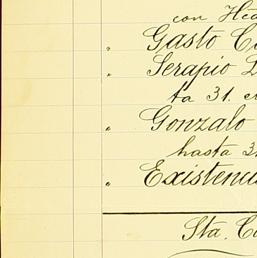 con Hea
Gasto C
Serapio L
ta 31. e
Gonzalo
hasta 3
Existenci
Sta. Ca